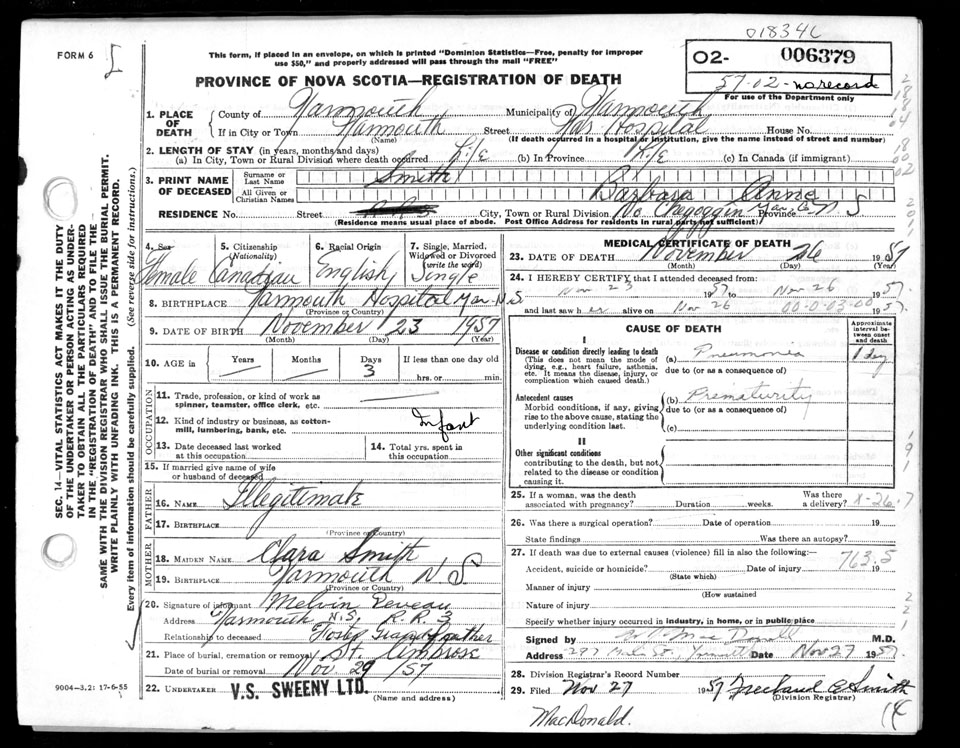 01834L
FORM 6
This form, if placed in an envelope, on which is printed "Dominion Statistics—Free, penalty for improper
use $50," and properly addressed will pass through the mail "FREE"
PROVINCE OF NOVA SCOTIA—REGISTRATION OF DEATH
02- 006379
57-02-no record
For use of the Department only
1. PLACE OF DEATH
County of Yarmouth Municipality of Yarmouth
If in City or Town Yarmouth Street Yar Hospital House No.
(Name) (If death occurred in a hospital or institution, give the name instead of street and number)
2. LENGTH OF STAY (in years, months and days)
(a) In City, Town or Rural Division where death occurred Life (b) in Province Life (c) in Canada (if immigrant)
3. PRINT NAME OF DECEASED
Surname or Last Name Smith
All Given or Christian Names Barbara Anne
RESIDENCE No. Street City, Town or Rural Division No. Chegoggin Yar. Co. Province N S
(Residence means usual place of abode. Post Office Address for residents in rural parts not sufficient)
4. Sex Female
5. Citizenship (Nationality) Canadian
6. Racial Origin English
7. Single, Married, Widowed or Divorced (write the word) Single
8. BIRTHPLACE Yarmouth Hospital Yar N.S
(Province or Country)
9. DATE OF BIRTH November 23 1957
(Month) (Day) (Year)
10. AGE in Years Months Days 3 If less than one day old
hrs. or min.
OCCUPATION
11. Trade, profession, or kind of work as
spinner, teamster, office clerk, etc.
12. Kind of industry or business, as cotton-
mill, lumbering, bank, etc. Infant
13. Date deceased last worked
at this occupation
14. Total yrs. spent in
this occupation
15. If married give name of wife
or husband of deceased
FATHER
16. NAME Illegitimate
17. BIRTHPLACE
(Province or Country)
MOTHER
18. MAIDEN NAME Clara Smith
19. BIRTHPLACE Yarmouth N S
(Province or Country)
20. Signature of informant Melvin Deveau
Address Yarmouth N.S. R.R. 3
Relationship to deceased Foster Grandfather
21. Place of burial, cremation or removal St. Ambrose
Date of burial or removal Nov. 29 /57
22. UNDERTAKER V.S. SWEENY LTD.
(Name and address)
9004—3.2: 17-6-55
MEDICAL CERTIFICATE OF DEATH
23. DATE OF DEATH November 26 1957
(Month) (Day) (Year)
24. I HEREBY CERTIFY that I attended deceased from:
Nov 23 1957 to Nov 26 1957
and last saw her alive on Nov 26 00-0-03-00 1957
CAUSE OF DEATH
Approximate interval between onset and death
I
Disease or condition directly leading to death (a) Pneumonia 1 day
(This does not mean the mode of
dying, e.g., heart failure, asthenia,
etc. It means the disease, injury, or
complication which caused death.)
due to (or as a consequence of)
Antecedent causes (b) Prematurity
Morbid conditions, if any, giving
rise to the above cause, stating the
underlying condition last.
due to (or as a consequence of)
(c)
II
Other significant conditions
contributing to the death, but not
related to the disease or condition
causing it.
25. If a woman, was the death
associated with pregnancy? Duration weeks. Was there
a delivery? 8-26.7
26. Was there a surgical operation? Date of operation 19
State findings Was there an autopsy?
27. If death was due to external causes (violence) fill in also the following:—
763.5
Accident, suicide or homicide? Date of injury 19
(State which)
Manner of injury
(How sustained
Nature of injury
Specify whether injury occurred in industry, in home, or in public place
Signed by MacDonald M.D.
Address 297 Main St., Yarmouth Date Nov 27 1957
28. Division Registrar's Record Number
29. Filed Nov 27 1957 Freeland C Smith
(Division Registrar)
MacDonald.
SEC. 14—VITAL STATISTICS ACT MAKES IT THE DUTY
OF THE UNDERTAKER OR PERSON ACTING AS UNDER-
TAKER TO OBTAIN ALL THE PARTICULARS REQUIRED
IN THE "REGISTRATION OF DEATH" AND TO FILE THE
SAME WITH THE DIVISION REGISTRAR WHO SHALL ISSUE THE BURIAL PERMIT.
WRITE PLAINLY WITH UNFADING INK. THIS IS A PERMANENT RECORD.
Every item of information should be carefully supplied. (See reverse side for instructions.)